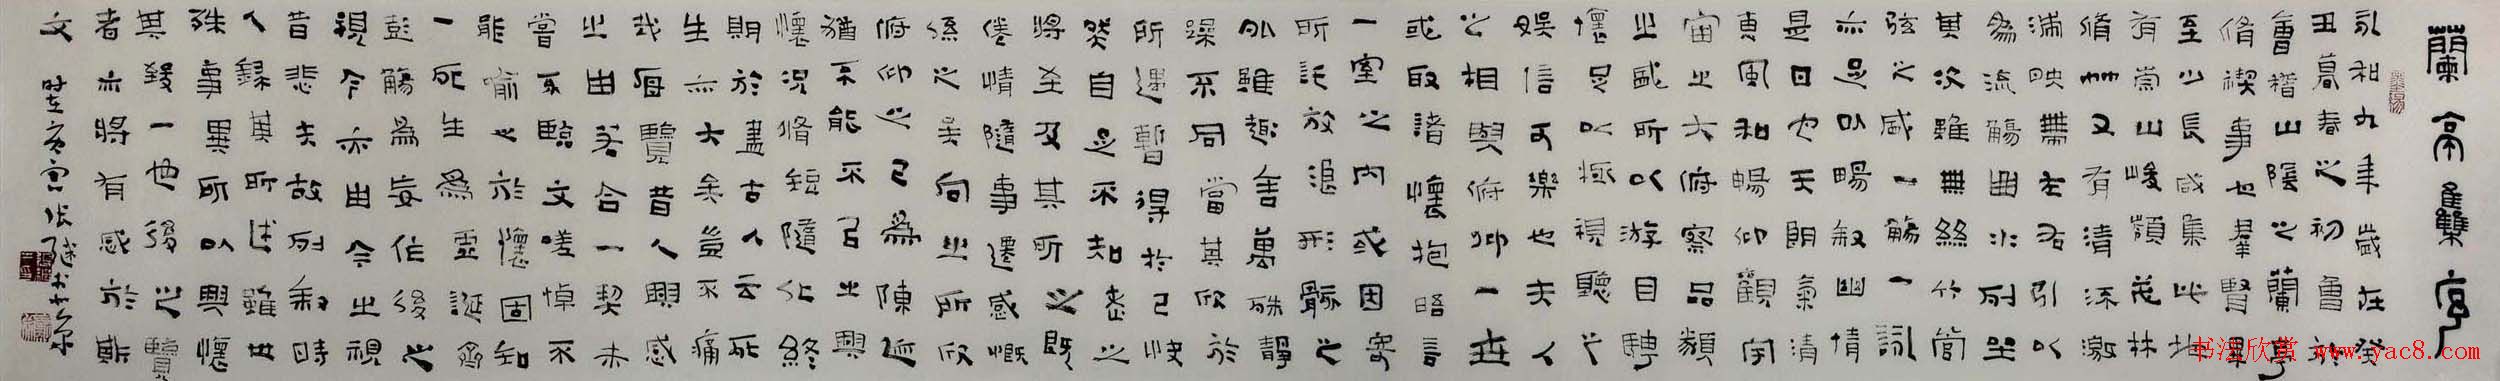 蘭亭集序
永和九年歲在癸
丑暮春之初會於
會稽山陰之蘭亭
脩禊事也羣賢畢
至少長咸集此地
有崇山峻嶺茂林
脩竹又有清流激
湍映帶左右引以
為流觴曲水列坐
其次雖無絲竹管
弦之盛一觴一詠
亦足以暢敘幽情
是日也天朗氣清
惠風和暢仰觀宇
宙之大俯察品類
之盛所以游目騁
懷足以極視聽之
娛信可樂也夫人
之相與俯仰一世
或取諸懷抱晤言
一室之內或因寄
所託放浪形骸之
外雖趣舍萬殊靜
躁不同當其欣於
所遇暫得於己快
然自足不知老之
將至及其所之既
倦情隨事遷感慨
係之矣向之所欣
俯仰之已為陳迹
猶不能不以之興
懷況脩短隨化終
期於盡古人云死
生亦大矣豈不痛
哉每覽昔人興感
之由若合一契未
嘗不臨文嗟悼不
能喻之於懷固知
一死生為虛誕齊
彭觴為妄作後之
視今亦由今之視
昔悲夫故列敘時
人錄其所述雖世
殊事異所以興懷
其致一也後之覽
者亦將有感於斯
文 時在庚寅張繼書於京
书法欣赏 www.yac8.com